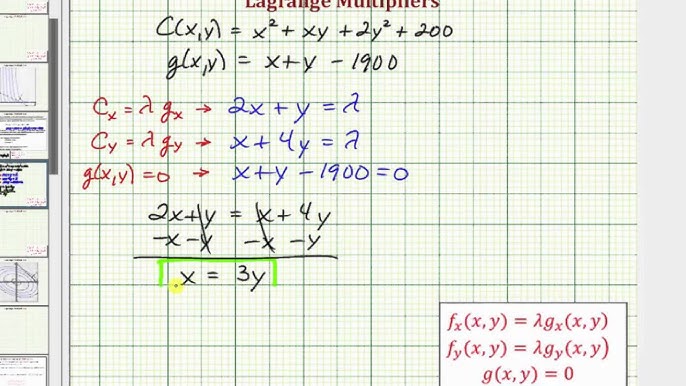 Lagrange Multipliers
C(x,y) = x² + xy + 2y² + 200
g(x,y) = x + y - 1900
Cₓ = λ gₓ → 2x + y = λ
C_y = λ g_y → x + 4y = λ
g(x,y) = 0 → x + y - 1900 = 0
2x + y = x + 4y
-x - y -x - y
x = 3y
fₓ(x, y) = λgₓ(x, y)
f_y(x, y) = λg_y(x, y)
g(x, y) = 0